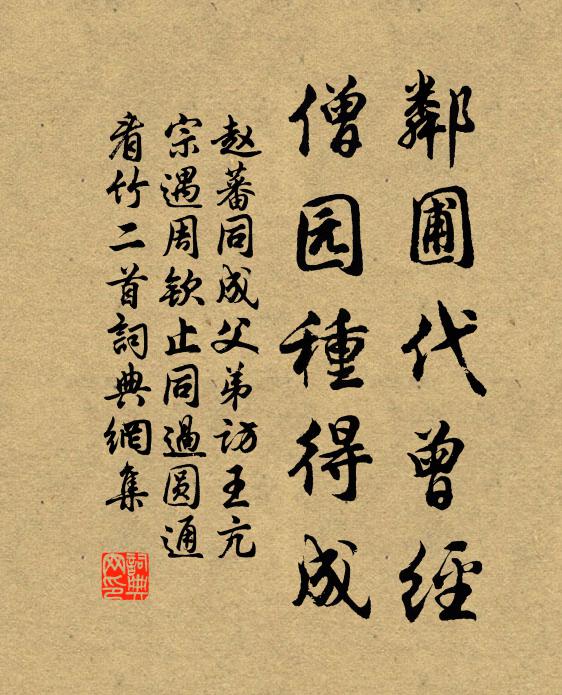 鄰圃代曾經
僧园種得成
赵蕃同成父弟訪王亢
宗遇周钦止同過圆通
看竹二首詞典網集
詞典网印